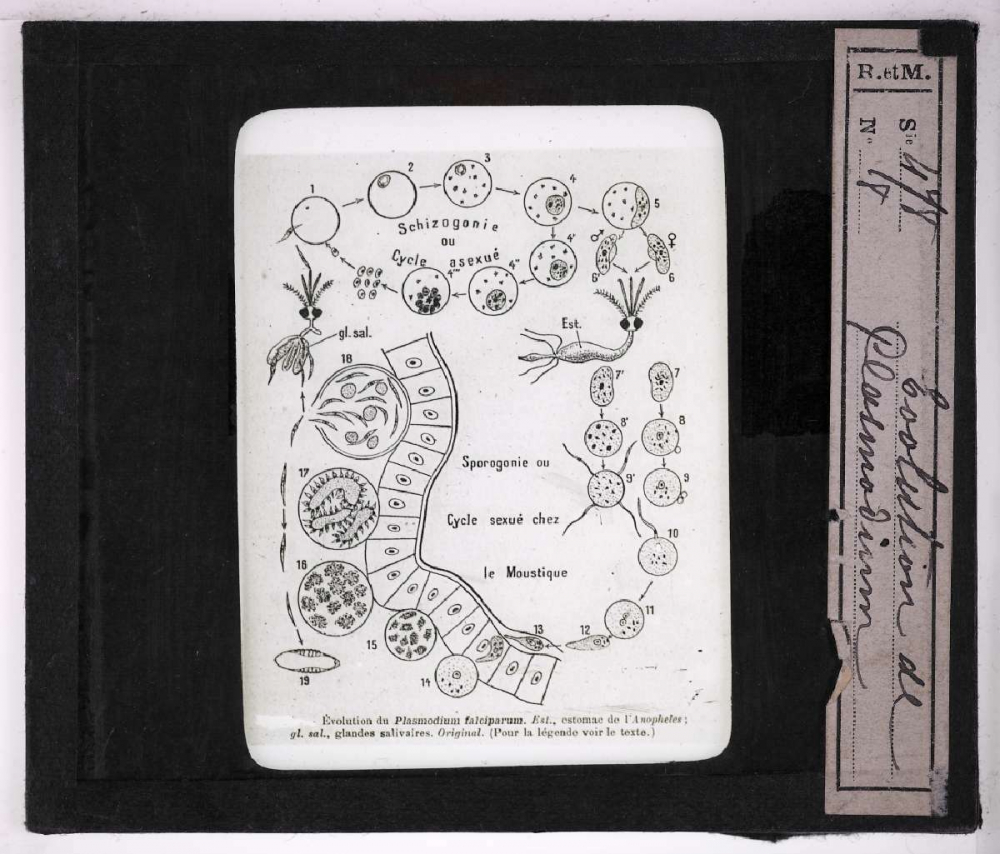 1
2
3
4
5
4'
4''
4'''
6'
6
♂
♀
Schizogonie
ou
Cycle asexué
gl. sal.
Est.
18
7'
7
8'
8
9'
9
10
Sporogonie ou
Cycle sexué chez
le Moustique
17
16
15
14
13
12
11
19
Évolution du Plasmodium falciparum. Est., estomac de l'Anopheles ;
gl. sal., glandes salivaires. Original. (Pour la légende voir le texte.)
R. et M.
Sie
No
Evolution de
Plasmodium